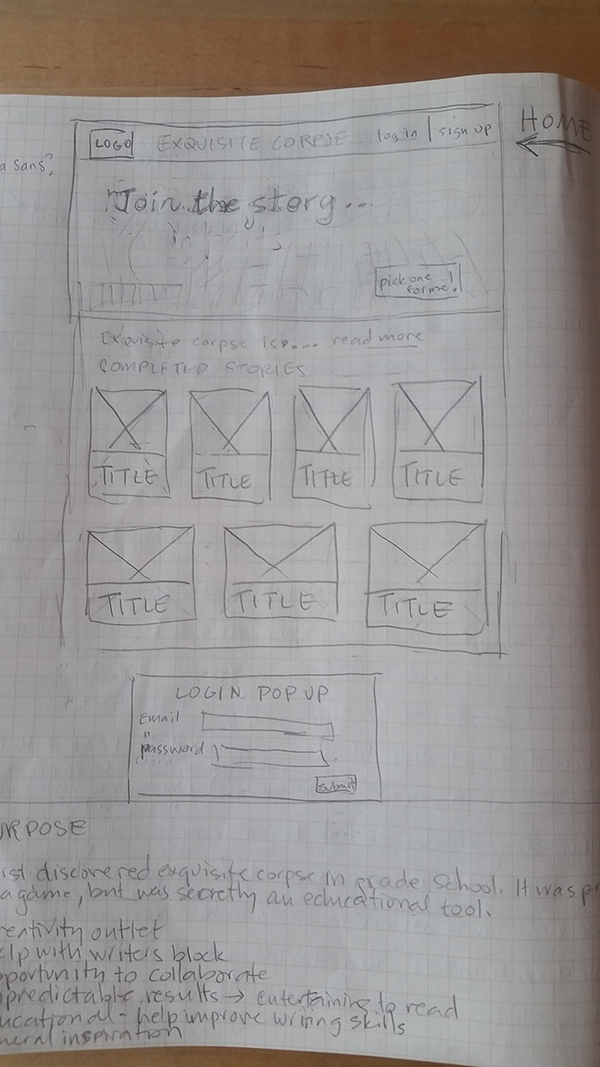 a sans?
HOME
LOGO EXQUISITE CORPSE log in | sign up
Join the story...
pick one
for me!
Exquisite corpse is.... read more
COMPLETED STORIES
TITLE TITLE TITLE TITLE
TITLE TITLE TITLE
LOGIN POP UP
Email
password
submit
URPOSE
ist discovered exquisite corpse in grade school. It was p
a game, but was secretly an educational tool.
reativity outlet
elp with writers block
portunity to collaborate
predictable results → entertaining to read
ucational - help improve writing skills
neral inspiration